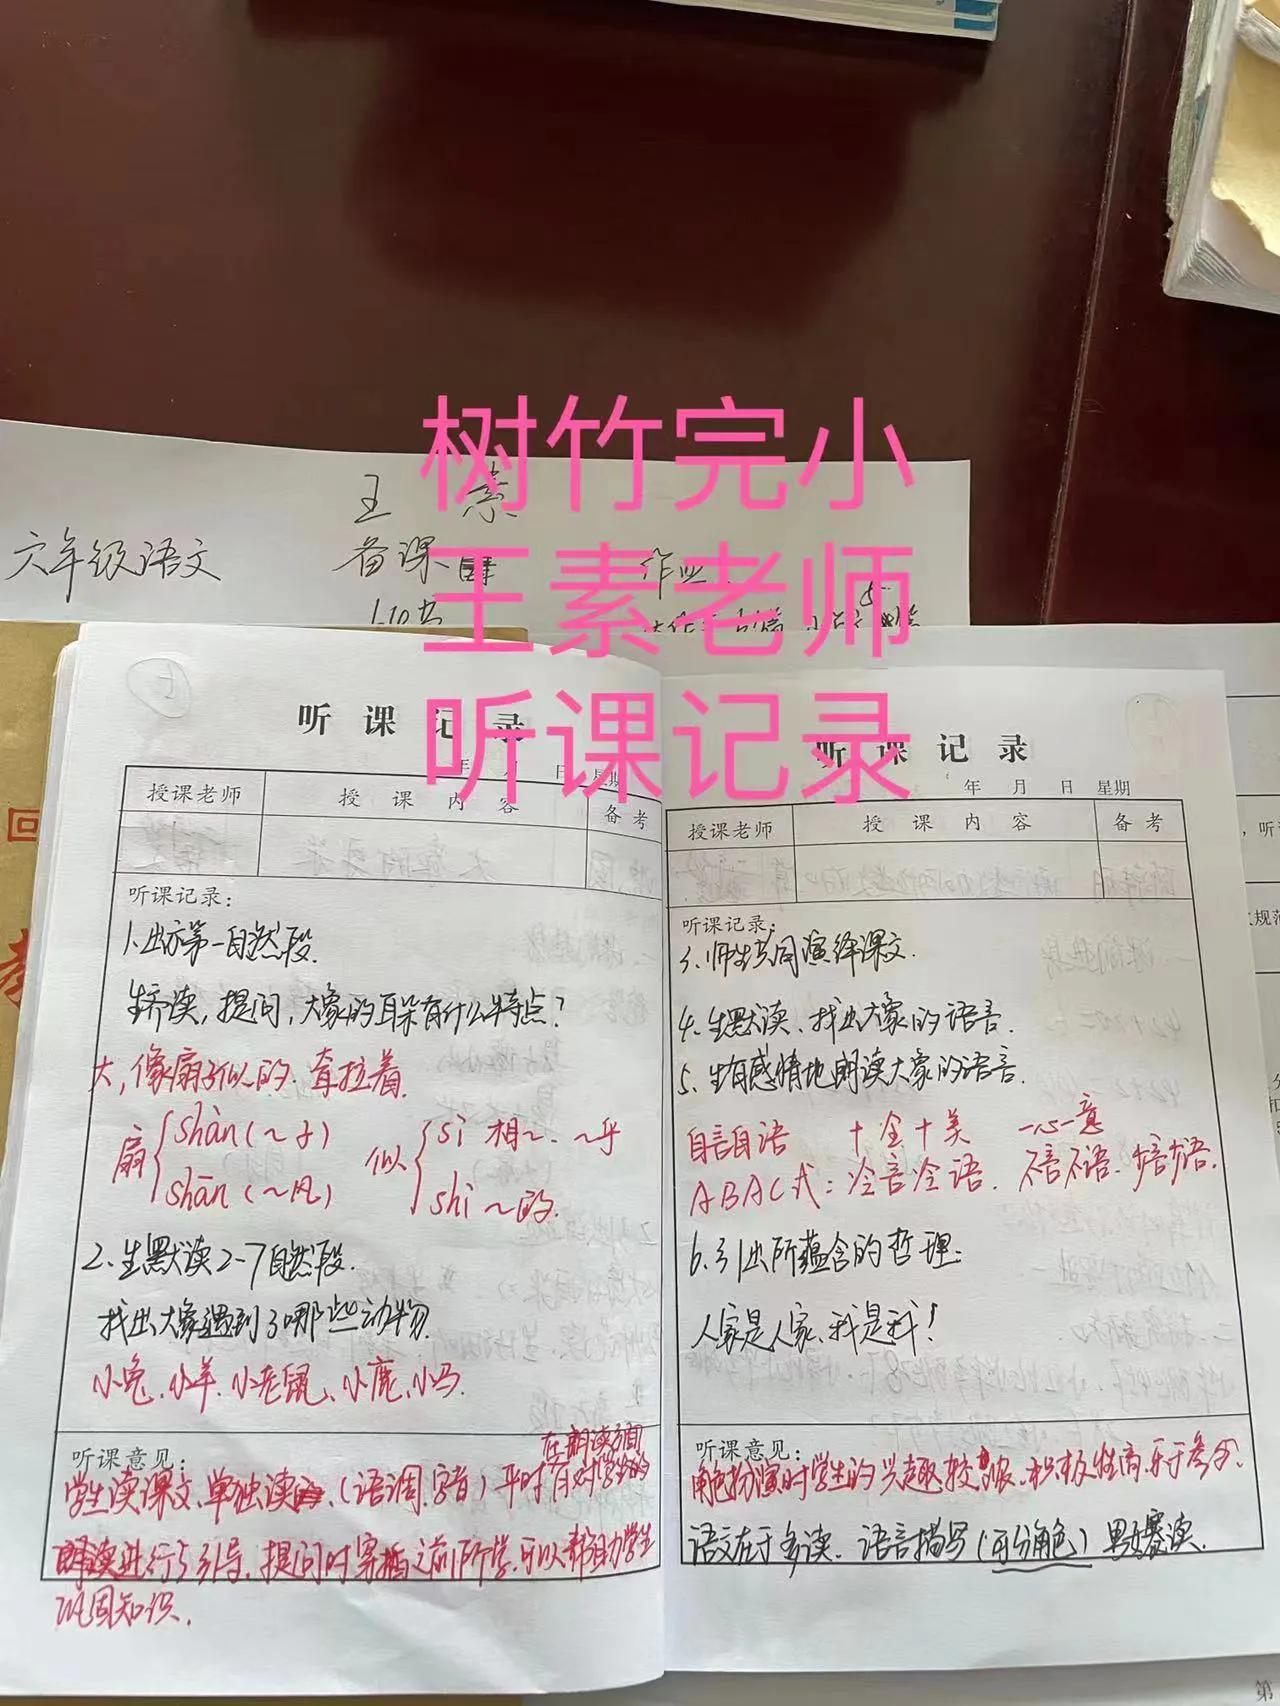 树竹完小
王素老师
听课记录
王 素
六年级语文
备课
作业
听课记录
年 月 日 星期
授课老师 授课内容 备考
听课记录:
1.出示第一自然段.
生齐读,提问,大象的耳朵有什么特点?
大,像扇子似的.耷拉着.
扇 shàn(~子) 似 sì 相~.~乎
shān(~风) shì ~的.
2.生默读2-7自然段.
找出大象遇到了哪些动物.
小兔.小羊.小老鼠、小鹿、小马.
听课意见:
在朗读方面
学生读课文、单独读(语调、字音)平时有对学生的
朗读进行引导,提问时穿插之前所学,可以帮助学生
巩固知识.
听课记录
年 月 日 星期
授课老师 授课内容 备考
听课记录:
3.师生共同演绎课文.
4.生默读、找出大象的语言.
5.生有感情地朗读大象的语言.
自言自语 十全十美 一心一意
ABAC式:冷言冷语.不言不语.
6.引出所蕴含的哲理:
人家是人家、我是我!
听课意见:
角色扮演时学生的兴趣较浓.积极性高.乐于参与.
语文在于多读.语言描写(可分角色)男女赛读.
回
教
第